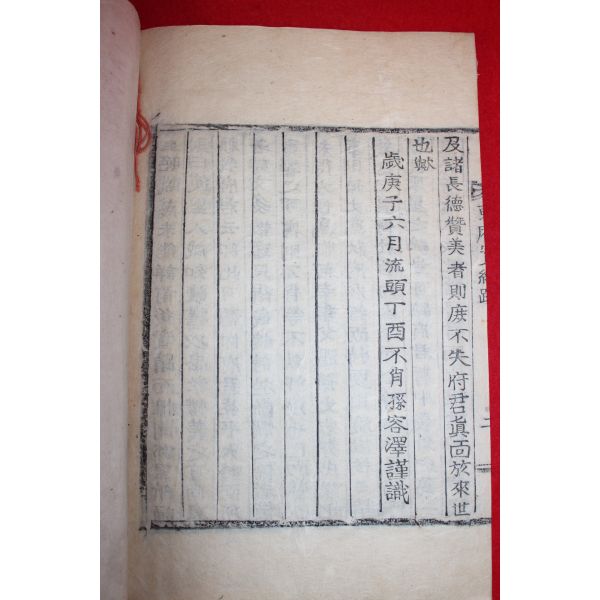 及諸長德贊美者則庶不失府君眞面於來世
也歟
歲庚子六月流頭丁酉不肖孫容澤謹識